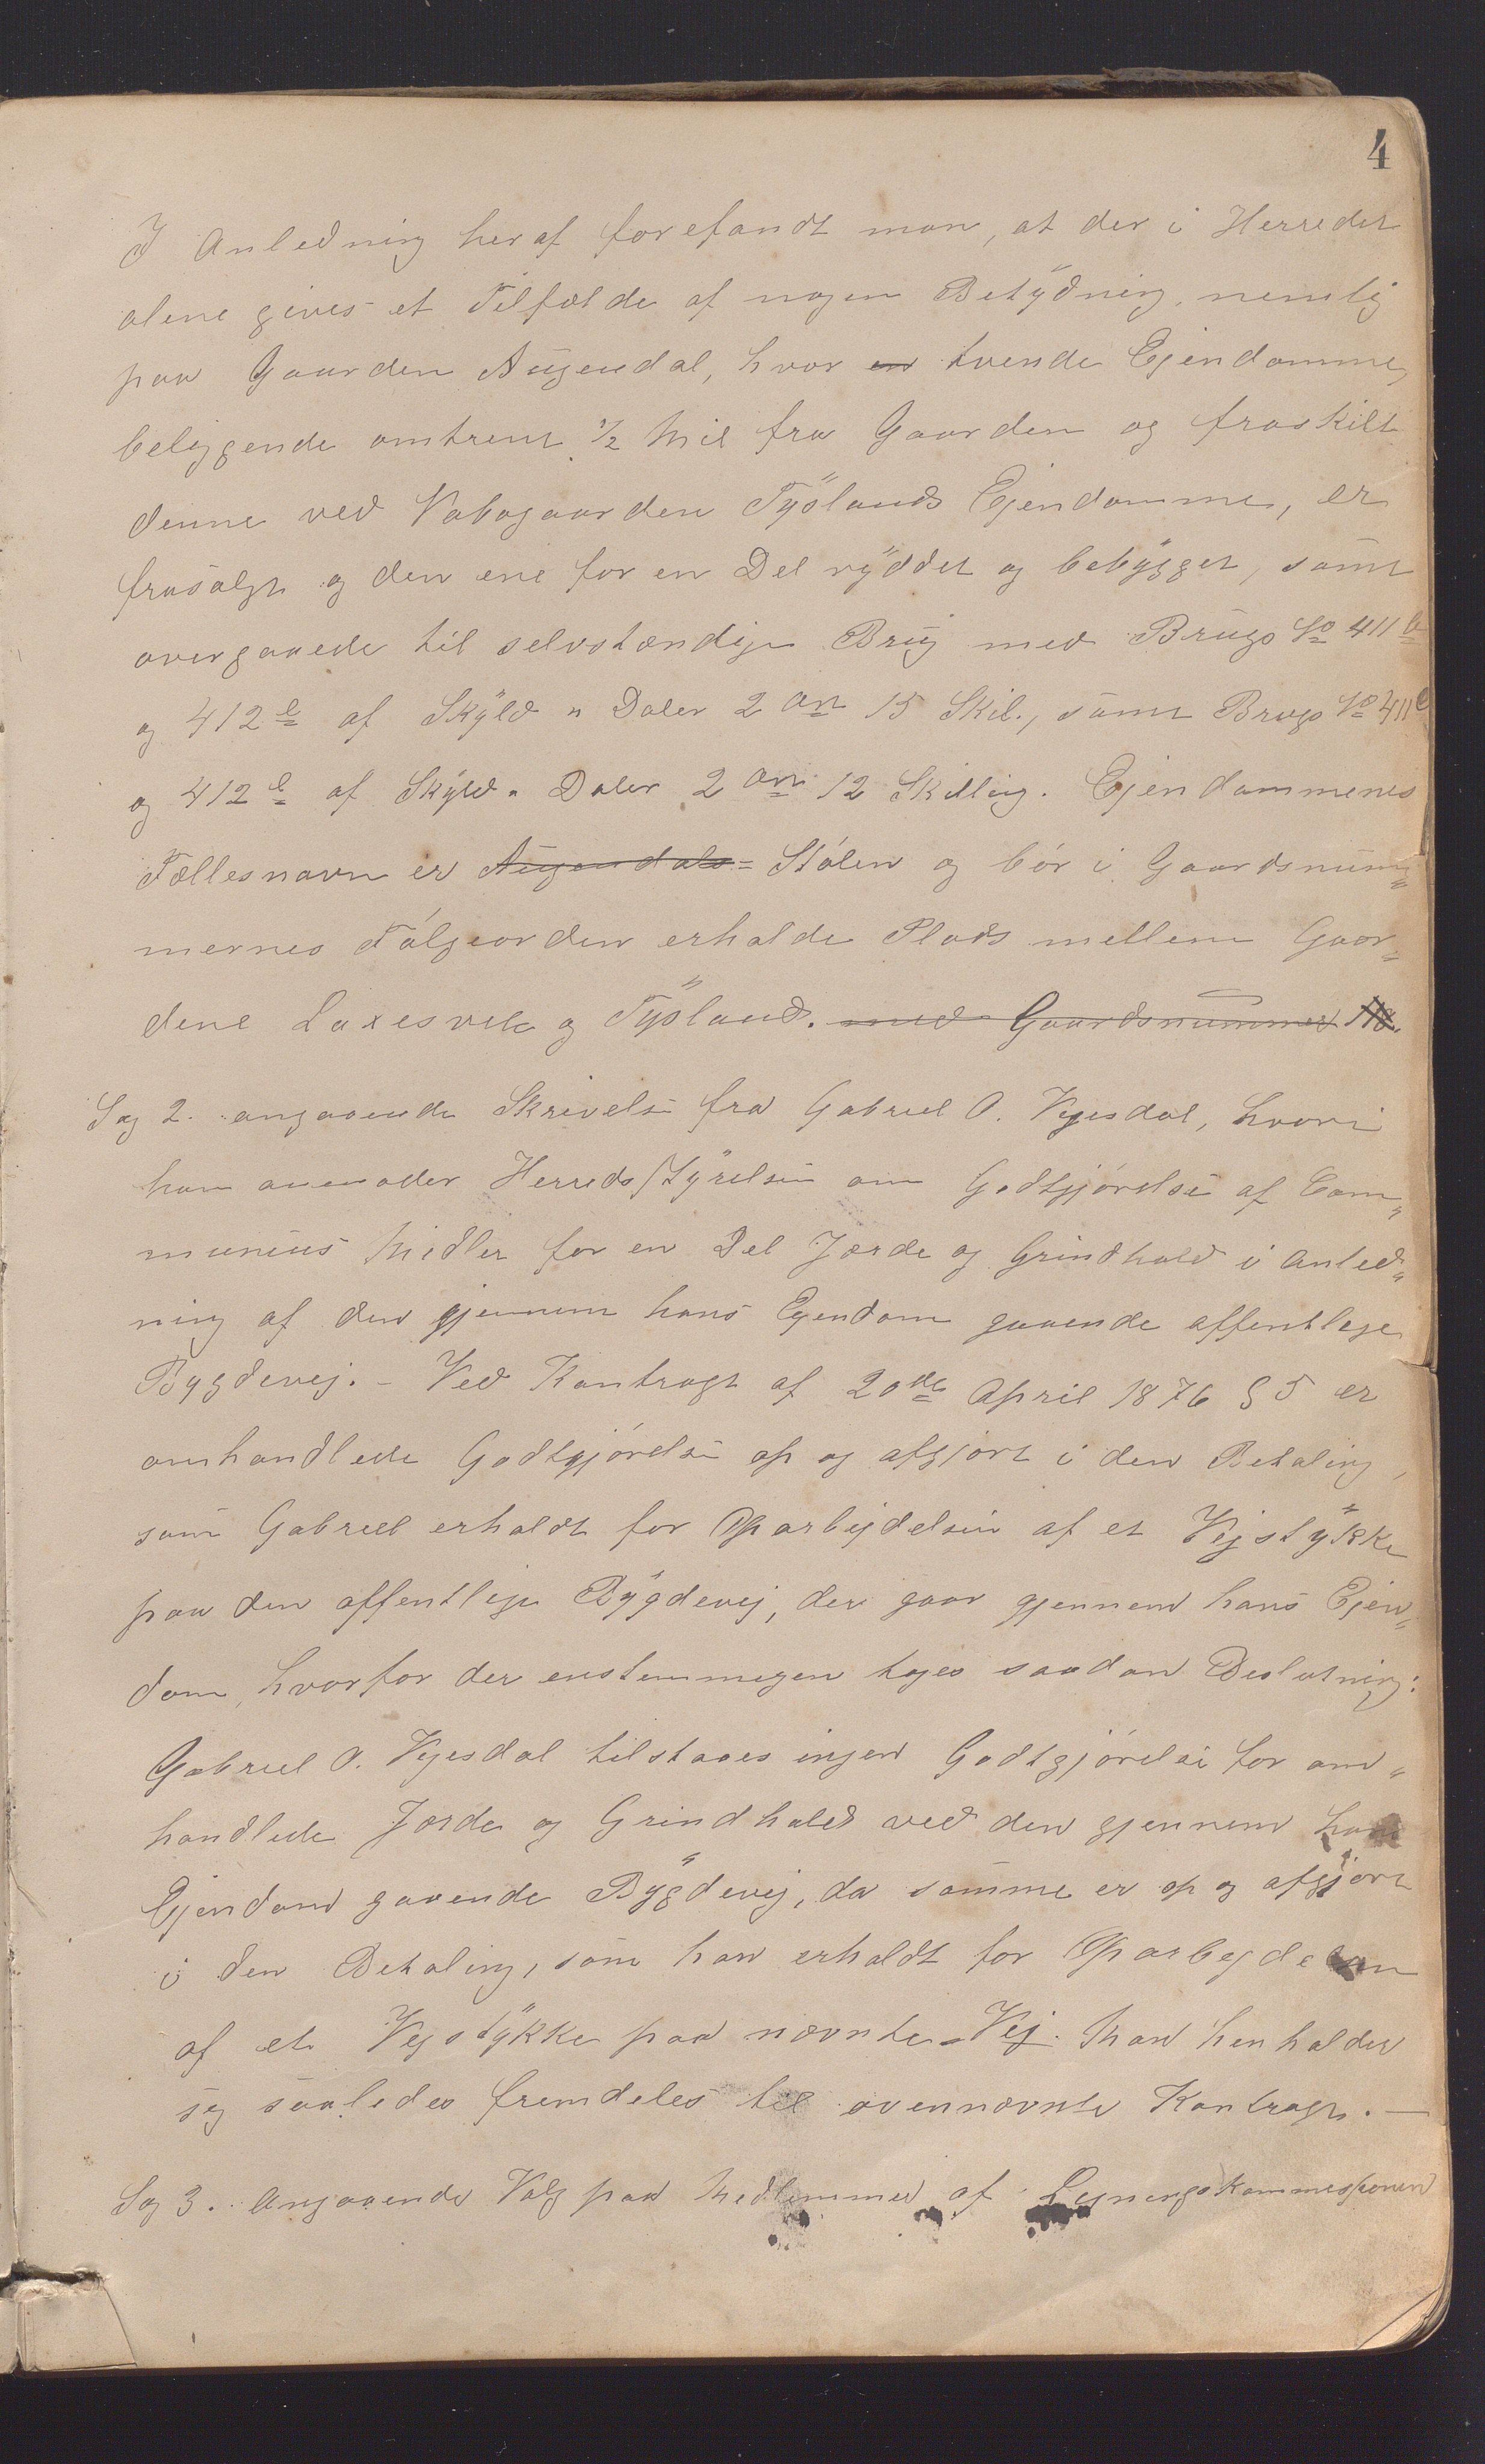 4
I Anledning heraf forefandt man, at der i Herredet
alene gives et Tilfælde af nogen Betydning, nemlig
paa Gaarden Augendal, hvor en tvende Ejendomme,
beliggende omtrent 1/2 Mil fra Gaarden og fraskilt
denne ved Nabogaarden Tyslands Ejendomme, er
frasolgt og den ene for en Del ryddet og bebygget, samt
overgaaede til selvstændige Brug med Brugs No 411 b
og 412 b af Skyld " Daler 2 Ort 15 Skil., samt Brugs No 411 c
og 412 c af Skyld " Daler 2 Ort 12 Skilling. Ejendommenes
Fællesnavn er Augendals= Stølen og bør i Gaardsnum„
mernes Følgeorden erholde Plads mellem Gaar„
dene Laxesvele og Tysland. med Gaardsnummer
Sag 2. angaaende Skrivelse fra Gabriel O. Vejesdal, hvori
han anmoder Herredsstyrelsen om Godtgjørelse af Com„
munens Midler for en Del Jærde og Grindhold i Anled„
ning af den gjennem hans Ejendom gaaende offentlige
Bygdevej. – Ved Kontragt af 20de April 1876 § 5 er
omhandlede Godtgjørelse op og afgjort i den Betaling,
som Gabriel erholdt for Oparbejdelsen af et Vejstykke
paa den offentlige Bygdevej, der gaar gjennem hans Ejen„
dom, hvorfor der enstemmigen toges saadan Beslutning:
Gabriel O. Vejesdal tilstaaes ingen Godtgjørelse for om„
handlede Jærde og Grindhold ved den gjennem hans
Ejendom gaaende Bygdevej, da samme er op og afgjort
i den Betaling, som han erholdt for Oparbejdelsen
af et Vejstykke paa nævnte Vej. Man henholder
sig saaledes fremdeles til ovennævnte Kontragt. —
Sag 3. Angaaende Valg paa Medlemmer af Ligningskommissionen